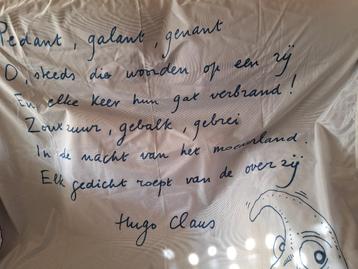 Pedant, galant, genant
O, steeds die woorden op een rij
En elke keer hun gat verbrand!
Zoutzuur, gebalk, gebrei
In de nacht van het moederland.
Elk gedicht roept van de overzij
Hugo Claus